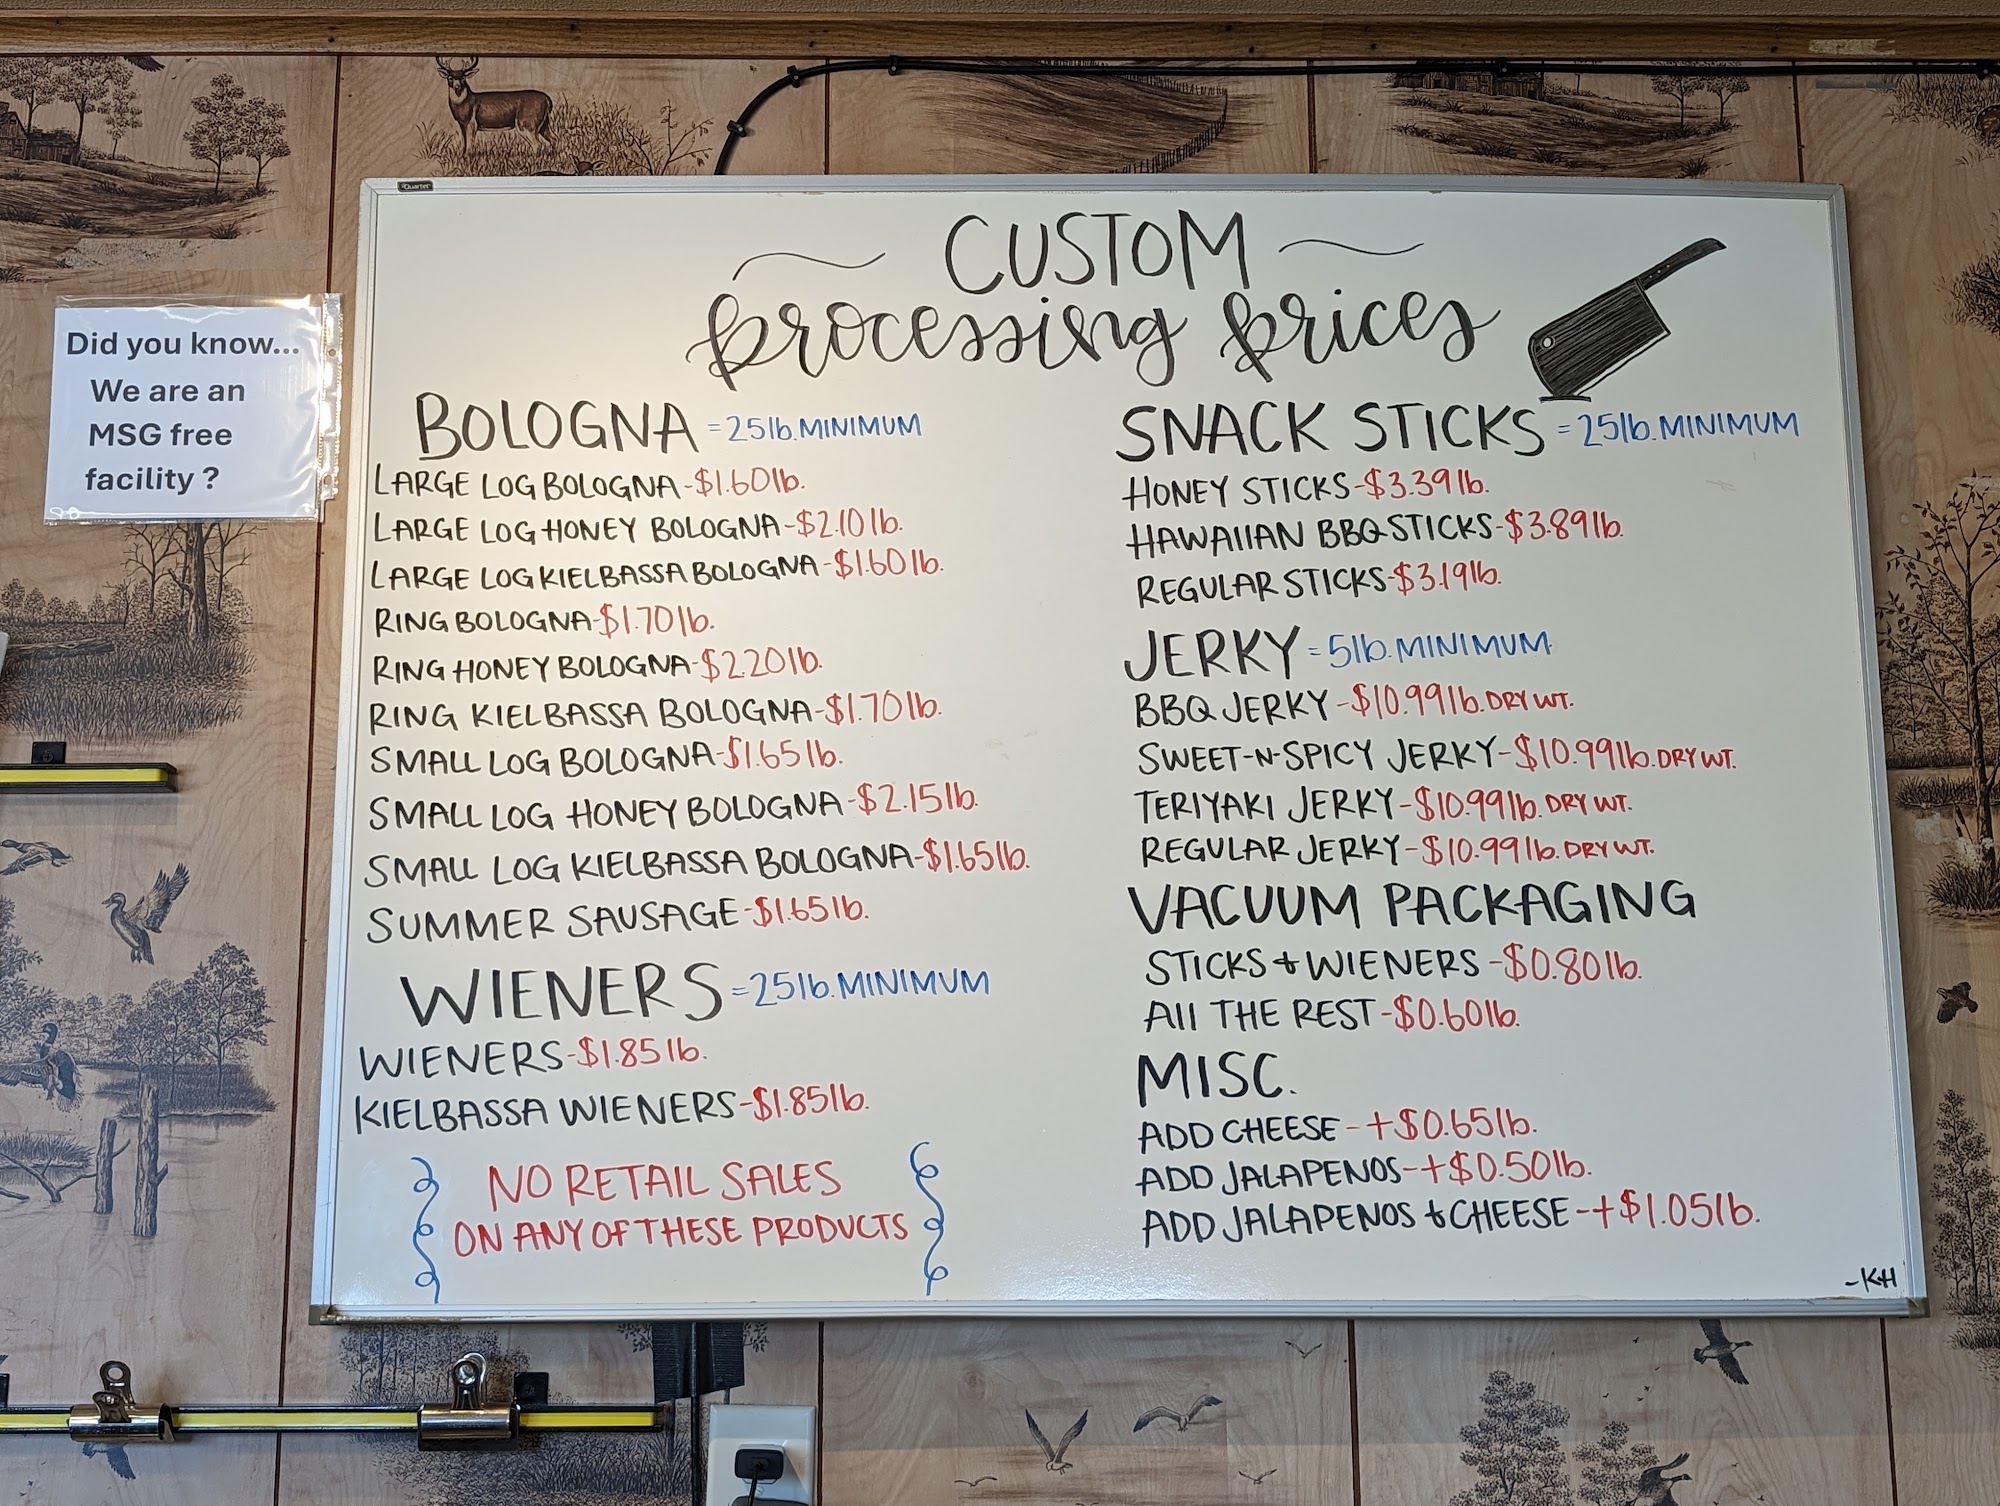 Did you know...
We are an
MSG free
facility ?
Quartet
CUSTOM
processing prices
BOLOGNA = 25lb. MINIMUM
LARGE LOG BOLOGNA - $1.60lb.
LARGE LOG HONEY BOLOGNA - $2.10lb.
LARGE LOG KIELBASSA BOLOGNA - $1.60lb.
RING BOLOGNA - $1.70lb.
RING HONEY BOLOGNA - $2.20lb.
RING KIELBASSA BOLOGNA - $1.70lb.
SMALL LOG BOLOGNA - $1.65lb.
SMALL LOG HONEY BOLOGNA - $2.15lb.
SMALL LOG KIELBASSA BOLOGNA - $1.65lb.
SUMMER SAUSAGE - $1.65lb.
WIENERS = 25lb. MINIMUM
WIENERS - $1.85lb.
KIELBASSA WIENERS - $1.85lb.
NO RETAIL SALES
ON ANY OF THESE PRODUCTS
SNACK STICKS = 25lb. MINIMUM
HONEY STICKS - $3.39lb.
HAWAIIAN BBQ STICKS - $3.89lb.
REGULAR STICKS - $3.19lb.
JERKY = 5lb. MINIMUM
BBQ JERKY - $10.99lb. DRY WT.
SWEET-N-SPICY JERKY - $10.99lb. DRY WT.
TERIYAKI JERKY - $10.99lb. DRY WT.
REGULAR JERKY - $10.99lb. DRY WT.
VACUUM PACKAGING
STICKS + WIENERS - $0.80lb.
All THE REST - $0.60lb.
MISC.
ADD CHEESE - +$0.65lb.
ADD JALAPENOS - +$0.50lb.
ADD JALAPENOS & CHEESE - +$1.05lb.
-KH